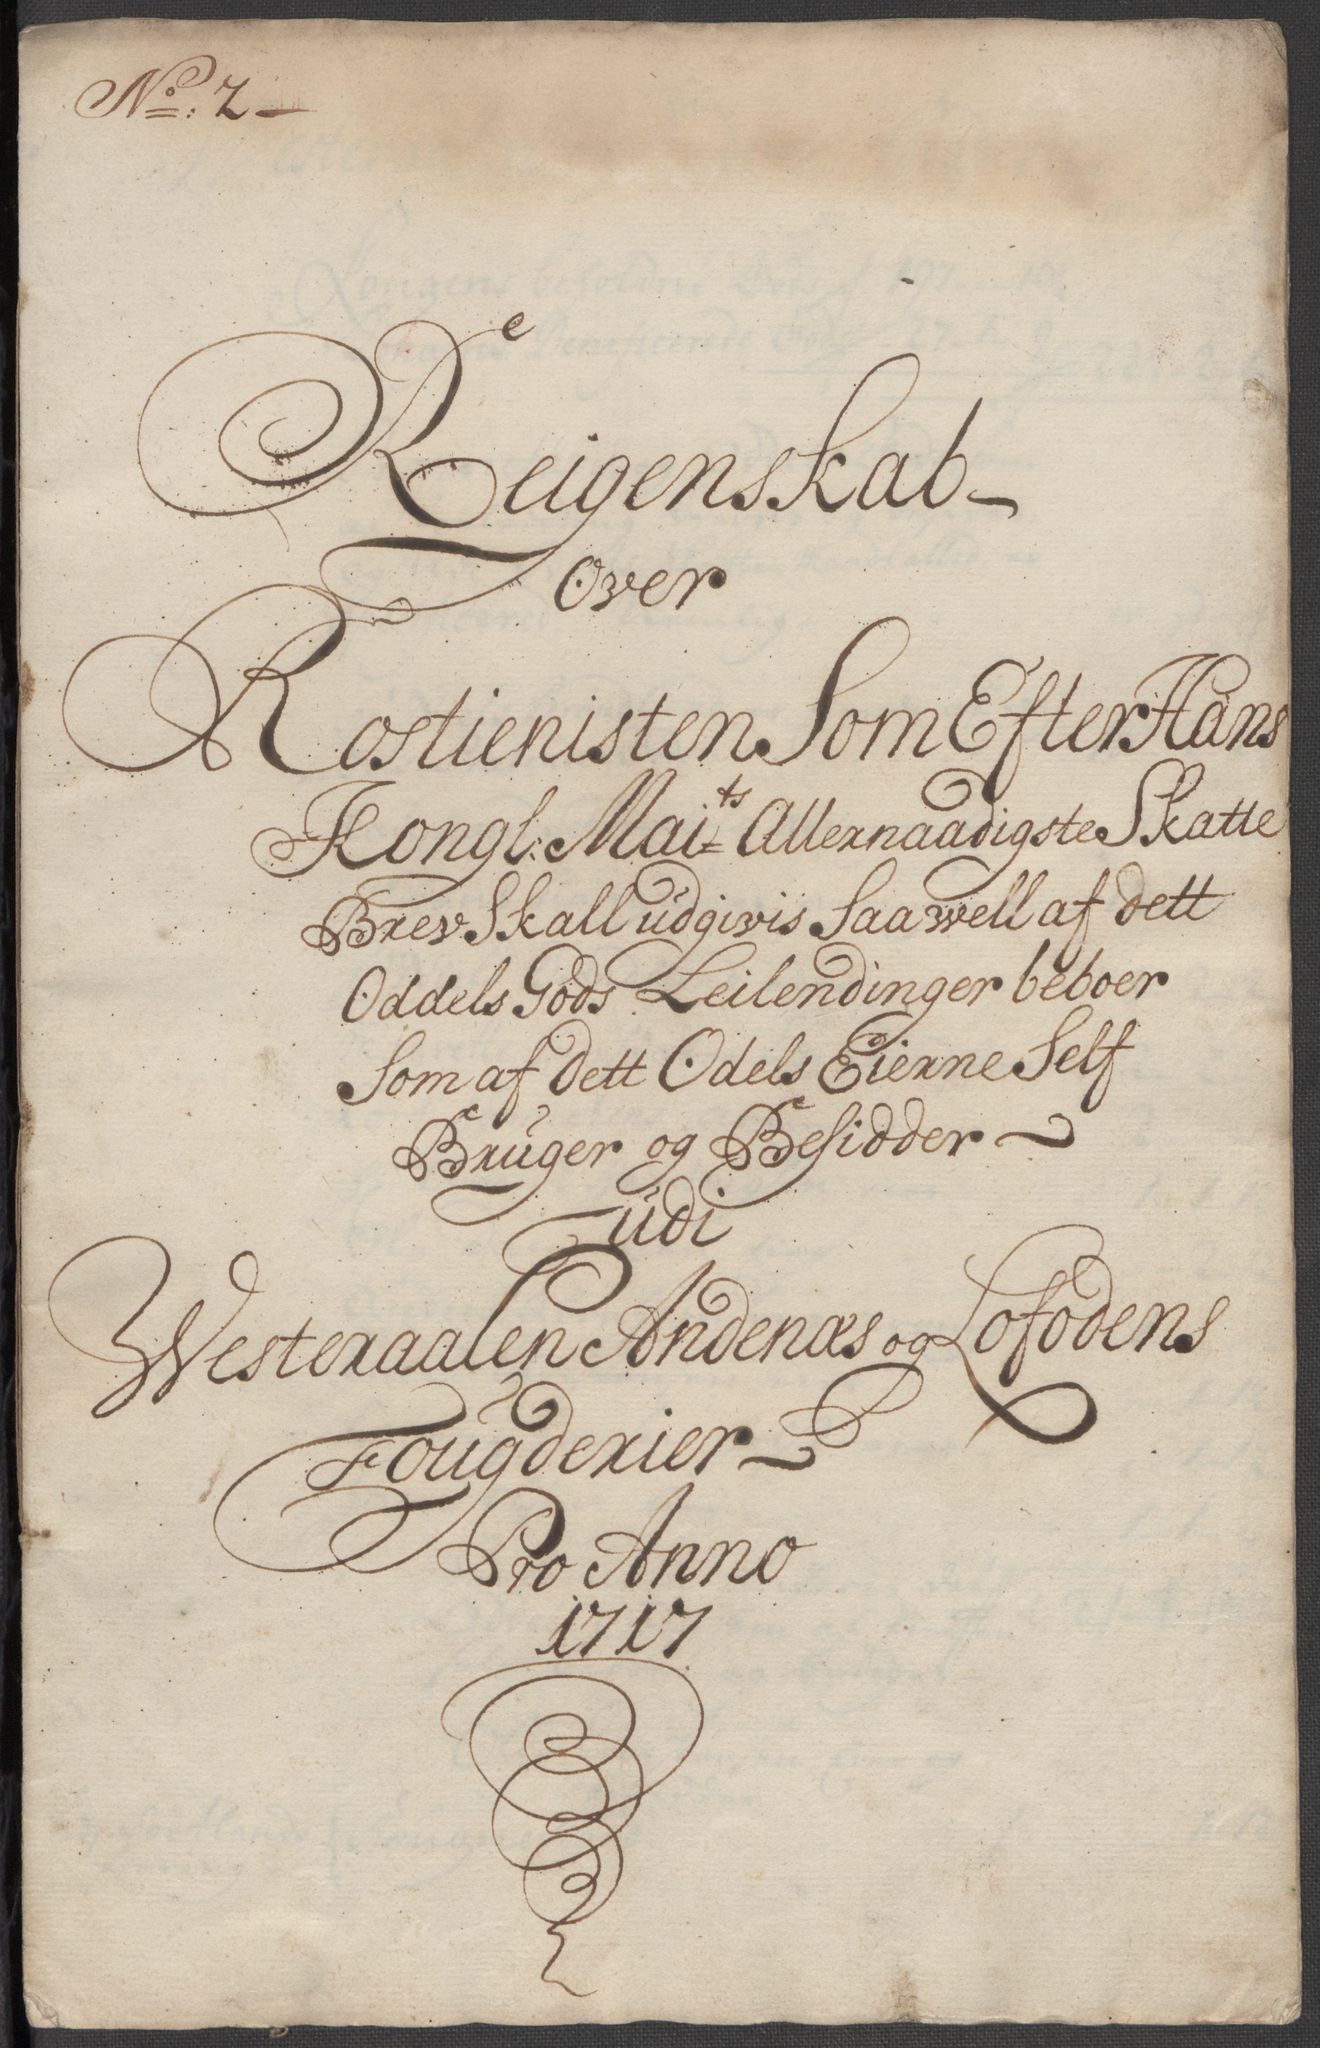 No: 2
Reigenskab
Over
Rostienisten Som Efter Hans
Kongl: Maits Allernaadigste Skatte
Brev Skall udgivis Saawell af dett
Oddels Gods Leilendinger beboer
Som af dett Odels Eierne Self
Bruger og Besidder
udi
Westeraalen Andenæs og Lofodens
Fougderier
Pro Anno
1717